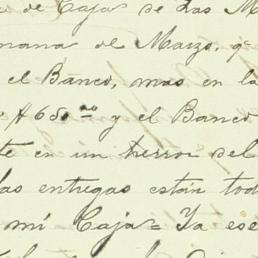 de Caja de Las M
mana de Marzo, q
el Banco, mas en la
$650 00 y el Banco
te en un herror del
las entregas están tod
mi Caja = Ya ese